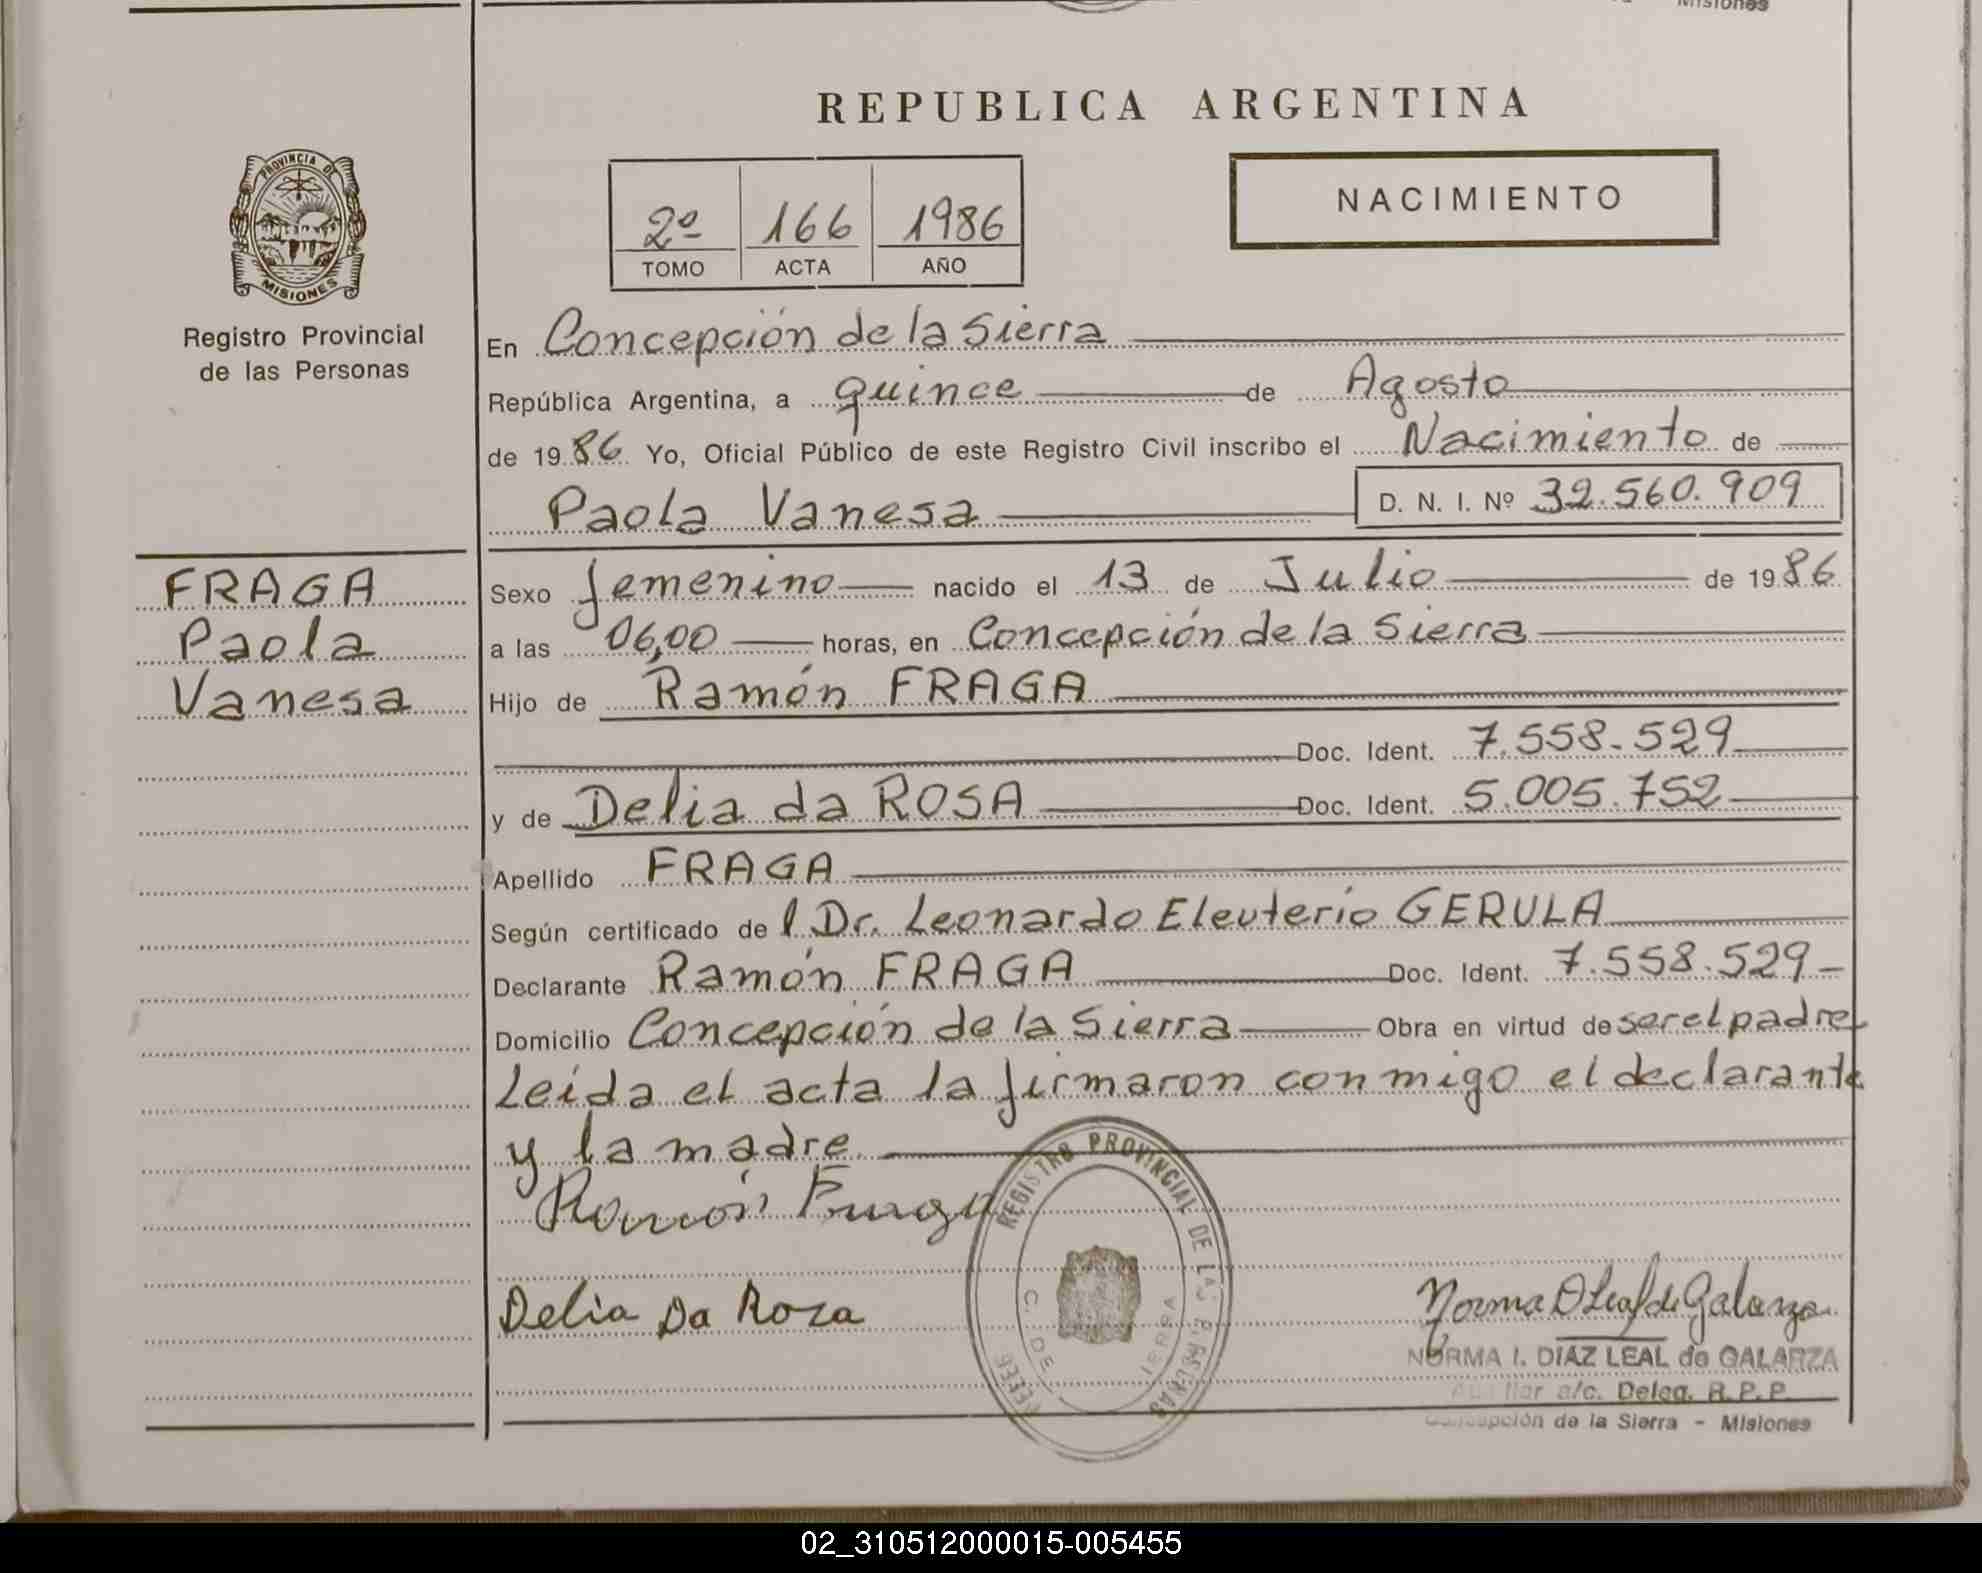 Misiones
REPUBLICA ARGENTINA
PROVINCIA DE
MISIONES
Registro Provincial
de las Personas
2º 166 1986
TOMO ACTA AÑO
NACIMIENTO
En Concepción de la Sierra
República Argentina, a quince de Agosto
de 1986 Yo, Oficial Público de este Registro Civil inscribo el Nacimiento de
Paola Vanesa D. N. I. Nº 32.560.909
FRAGA
Paola
Vanesa
Sexo femenino nacido el 13 de Julio de 1986
a las 06,00 horas, en Concepción de la Sierra
Hijo de Ramón FRAGA
Doc. Ident. 7.558.529
y de Delia da ROSA Doc. Ident. 5.005.752
Apellido FRAGA
Según certificado de l Dr. Leonardo Eleuterio GERULA
Declarante Ramón FRAGA Doc. Ident. 7.558.529
Domicilio Concepción de la Sierra Obra en virtud de ser el padre
Leida el acta la firmaron conmigo el declarante
y la madre
Ramón Fraga
Delia Da Roza
REGISTRO PROVINCIAL DE LAS
C. DE IERRA
Norma D Leal de Galarza
NORMA I. DIAZ LEAL de GALARZA
Auxiliar a/c. Deleg. R. P. P.
Concepción de la Sierra - Misiones
02_310512000015-005455